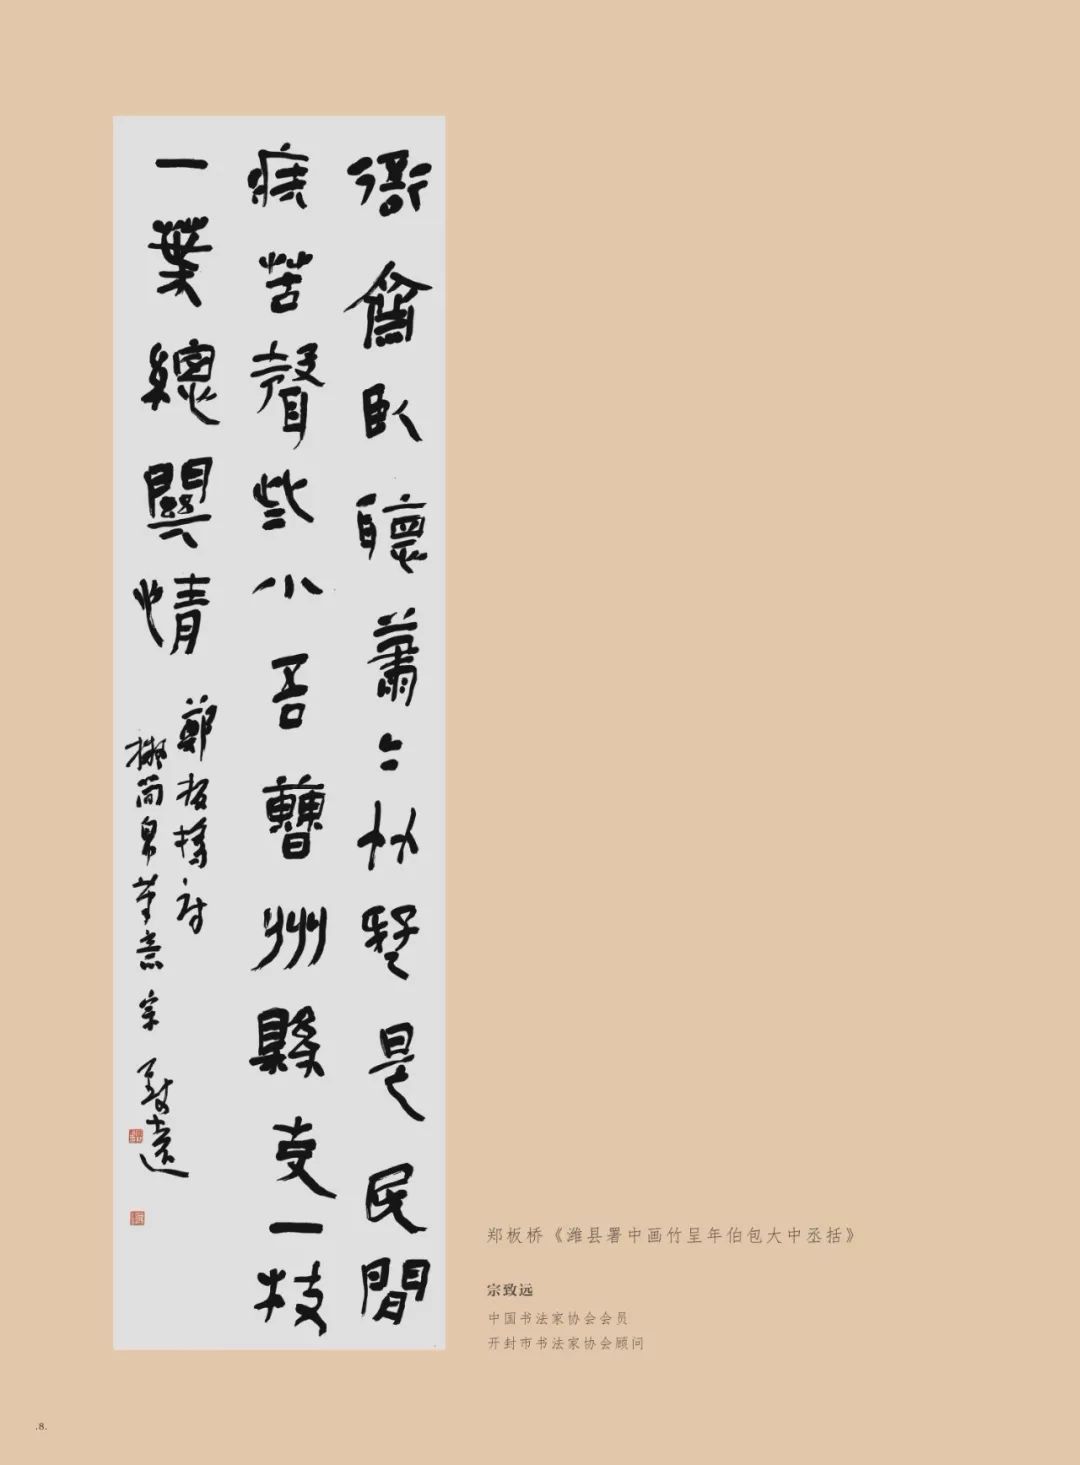 衙齋卧聽蕭〻竹疑是民間
疾苦聲些小吾曹州縣吏一枝
一葉總關情
鄭板橋詩
擬簡帛筆意 宗致遠
郑板桥《潍县署中画竹呈年伯包大中丞括》
宗致远
中国书法家协会会员
开封市书法家协会顾问
.8.